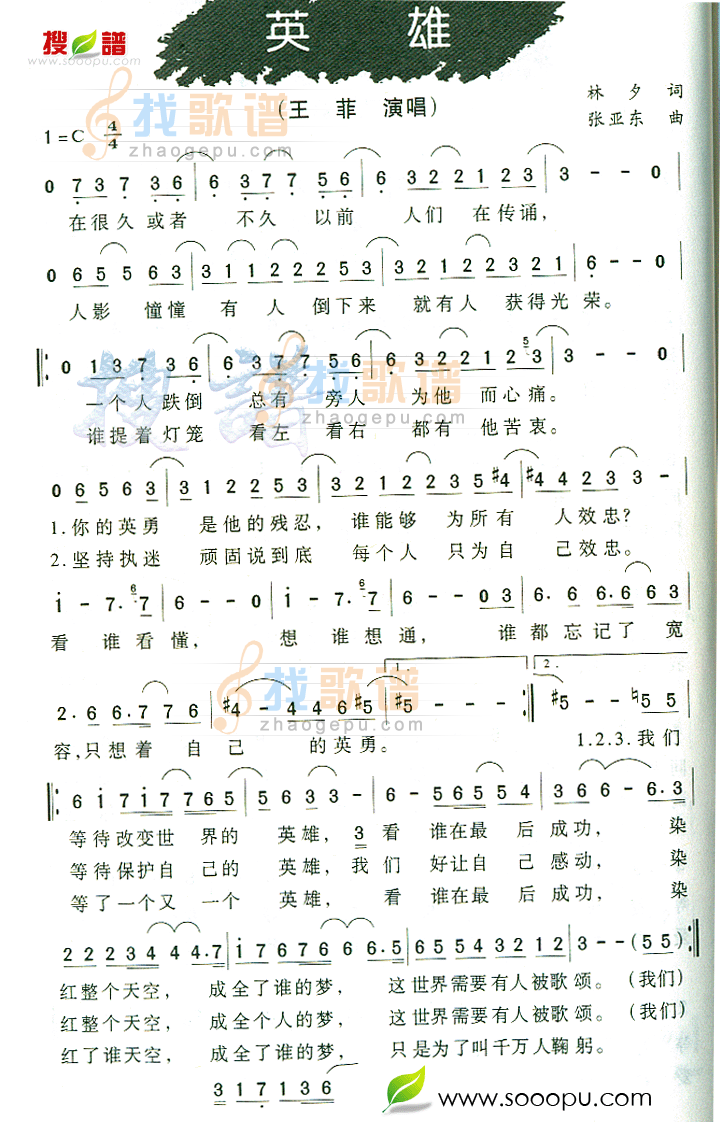 搜谱
www.sooopu.com
英 雄
(王 菲 演唱)
林 夕 词
张亚东 曲
1=C 4/4
找歌谱
zhaogepu.com
0 7 3 7 3 6 | 6 3 7 7 5 6 | 6 3 2 2 1 2 3 | 3 - - 0 |
在很久或者 不久 以前 人们 在传诵,
0 6 5 5 6 3 | 3 1 1 2 2 2 5 3 | 3 2 1 2 2 3 2 1 | 6 - - 0 |
人影 憧憧 有 人 倒下来 就有人 获得光荣。
搜谱
找歌谱
zhaogepu.com
‖: 0 1 3 7 3 6 | 6 3 7 7 5 6 | 6 3 2 2 1 2 5 3 | 3 - - 0 |
一个人跌倒 总有 旁人 为他 而心痛。
谁提着灯笼 看左 看右 都有 他苦衷。
0 6 5 6 3 | 3 1 2 2 5 3 | 3 2 1 2 2 5 #4 | #4 2 2 3 - |
1.你的英勇 是他的残忍, 谁能够 为所有 人效忠?
2.坚持执迷 顽固说到底 每个人 只为自 己效忠。
1 - 7. 6 7 | 6 - - 0 | 1 - 7. 6 7 | 6 - - 0 3 | 6. 6 6. 6 6 3 |
看 谁看懂, 想 谁想通, 谁都忘记了 宽
找歌谱
zhaogepu.com
1.
2.
2. 6 6. 7 7 6 | #4 - 4 4 6 #5 | #5 - - :‖ #5 - - ♮5 5 |
容,只想着 自己 的英勇。 1.2.3.我们
‖: 6 1 7 1 7 7 6 5 | 5 6 3 3 - | 6 7 6 5 4 5 6 3 | 3 6 6 - 6. 3 |
等待改变世 界的 英雄, 3 看 谁在最 后成功, 染
等待保护自 己的 英雄, 我们 好让自 己感动, 染
等了一个又 一个 英雄, 看 谁在最 后成功, 染
2 2 2 3 4 4 4. 7 | 1 7 6 7 6 6 6. 5 | 6 5 5 4 3 2 1 2 | 3 - - (5 5) :‖
红整个天空, 成全了谁的梦, 这世界需要有人被歌颂。(我们)
红整个天空, 成全个人的梦, 这世界需要有人被歌颂。(我们)
红了谁天空, 成全了谁的梦, 只是为了叫千万人鞠躬。
3 1 7 1 3 6
www.sooopu.com